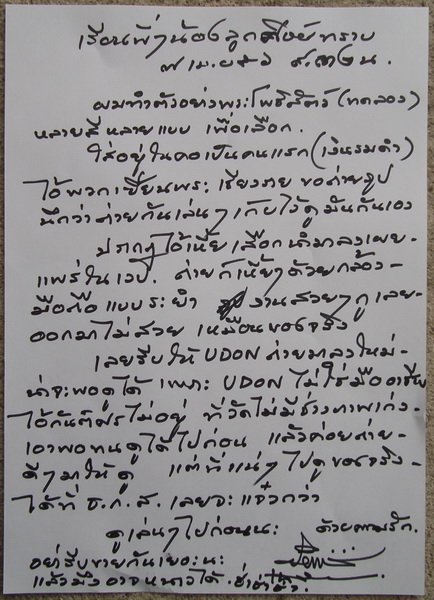 เรียนพี่ๆน้องลูกศิษย์ทราบ
๗ เม.ย.๕๖ ๙.๓๒ น.
ผมทำตัวอย่างพระโพธิสัตว์ (ทดลอง)
หลายสีหลายแบบ เพื่อเลือก.
ใส่อยู่ในคอเป็นคนแรก (เงินรมดำ)
ไอ้พวกเซียนพระ เรียงราย ขอถ่ายรูป
นึกว่าถ่ายกันเล่นๆ เก็บไว้ดูมันกันเอง
ปรากฏไอ้เหี้ย เลือกนำมาลงเผย-
แพร่ในเวป. ถ่ายก็เหี้ยๆด้วยกล้อง-
มือถือแบบระยำ งานสวยๆกูเลย-
ออกมาไม่สวย เหมือนของจริง
เลยรีบให้ UDON ถ่ายมาลงใหม่-
น่าจะพอดูได้ เพราะ UDON ไม่ใช่มืออาชีพ
ไอ้กันต์ศรไม่อยู่ ที่วัดไม่มีช่างภาพเก่ง-
เอาพอทนดูได้ไปก่อน แล้วค่อยถ่าย-
ดีๆมาให้ดู แต่ที่แน่ๆ ไปดูของจริง-
ได้ที่ ธ.ก.ส. เลยจะแจ๋วกว่า
ดูเล่นๆไปก่อนนะ ด้วยความรัก.
อย่ารีบขายกันเยอะนะ
แล้วมึงอาจหนาวได้. ฮ่าฮ่าฮ่า.